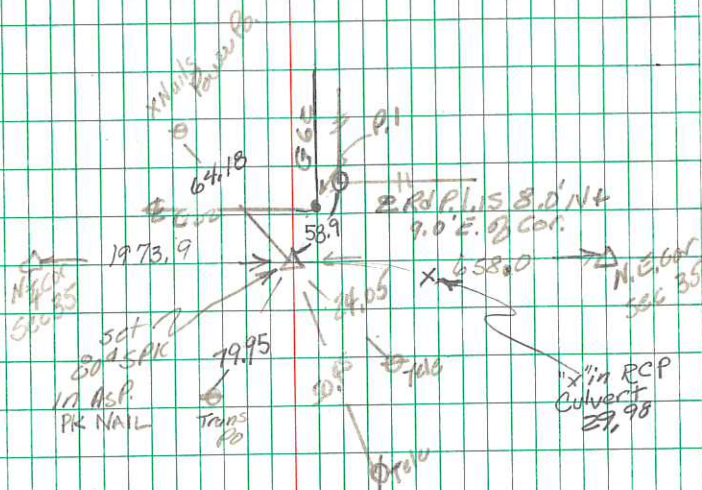 x Nails
Power Po.
P.I
64.18
58.9
Rd P.I. IS 8.0' N &
9.0' E. of Cor.
1973.9
658.0
N.E. Cor
Sec 35
N. Cor
Sec 35
set
80d SPK
In ASP.
PK NAIL
79.95
Trans
Po
24.05
Tele
Tele
"x" in RCP
Culvert
29.98